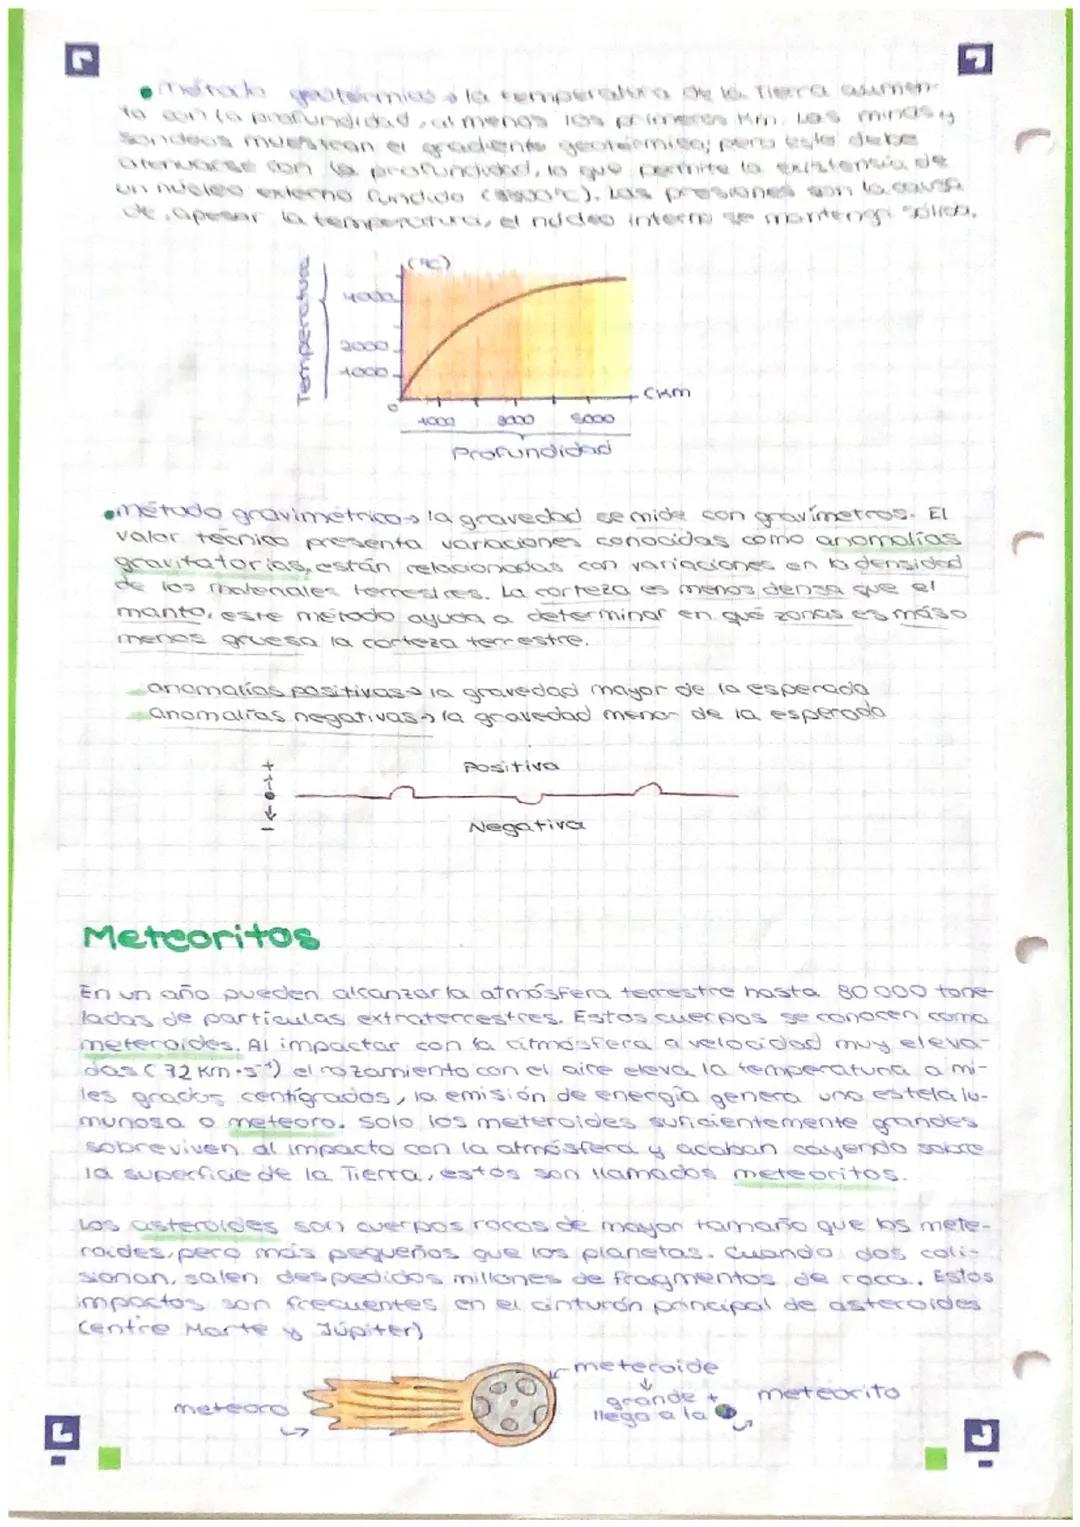 • Método geotérmico → la temperatura de la Tierra aumen-
ta con la profundidad, al menos los primeros Km. Las minas y
sondeos muestran el gradiente geotérmico; pero este debe
atenuarse con la profundidad, lo que permite la existensia de
un núcleo externo fundido. Las presiones son la causa
de, apesar la temperatura, el núcleo interno se mantenga sólido.
(°C)
Temperatura
4000
2000
1000
0
1000 3000 5000
(Km
Profundidad
• método gravimétrico → la gravedad se mide con gravímetros. El
valor técnico presenta variaciones conocidas como anomalías
gravitatorias, están relacionadas con variaciones en la densidad
de los materiales terrestres. La corteza es menos densa que el
manto, este método ayuda a determinar en qué zonas es más o
menos gruesa la corteza terrestre.
anomalías positivas → la gravedad mayor de la esperada
anomalías negativas → la gravedad menor de la esperada
+
Positiva
Negativa
Meteoritos
En un año pueden alcanzar la atmósfera terrestre hasta 80 000 tone-
ladas de partículas extraterrestres. Estos cuerpos se conocen como
meteroides. Al impactar con la atmósfera a velocidad muy eleva-
das (72 Km·s⁻¹) el rozamiento con el aire eleva la temperatura a mi-
les grados centígrados, la emisión de energía genera una estela lu-
munosa o meteoro. Solo los meteroides suficientemente grandes
sobreviven al impacto con la atmósfera y acaban cayendo sobre
la superficie de la Tierra, estos son llamados meteoritos.
Los asteroides son cuerpos rocas de mayor tamaño que los mete-
roides, pero más pequeños que los planetas. Cuando dos coli-
sionan, salen despedidos millones de fragmentos de roca. Estos
impactos son frecuentes en el cinturón principal de asteroides
(entre Marte y Júpiter)
meteoro
meteroide
grande +
llega a la
meteorito